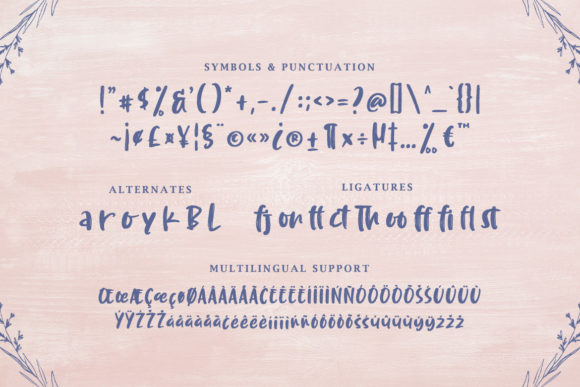 SYMBOLS & PUNCTUATION
!"#$%&'()*+,-./:;<>=?@[]\^_`{}|
~¡¢£¤¥¦§¨©«»¿®±¶×÷µ‡…‰€™
ALTERNATES
a r o y k B L
LIGATURES
fj on tt ct Th oo ff fi fl st
MULTILINGUAL SUPPORT